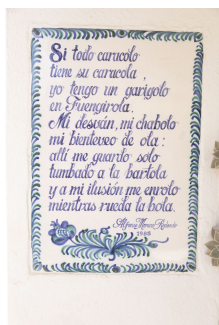 Si todo caracolo
tiene su caracola,
yo tengo un garigolo
en Fuengirola.
Mi desván, mi chabolo
mi bienteveo de ola:
allí me guardo solo
tumbado a la bartola
y a mi ilusión me enrolo
mientras rueda la bola.
Alfonso